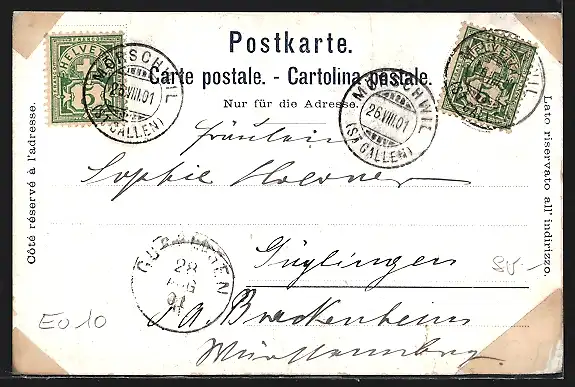 Postkarte.
Carte postale. - Cartolina postale.
Nur für die Adresse.
HELVETIA
FRANCO
5
MÖRSCHWIL
26.VIII.01
(ST. GALLEN)
MÖRSCHWIL
26.VIII.01
(ST. GALLEN)
HELVETIA
Côté réservé à l'adresse.
Lato riservato all' indirizzo.
Fräulein
Sophie
Güglingen
GÜGLINGEN
28
AUG
01
O.A. Brackenheim
Württemberg
EU 10
SV.-